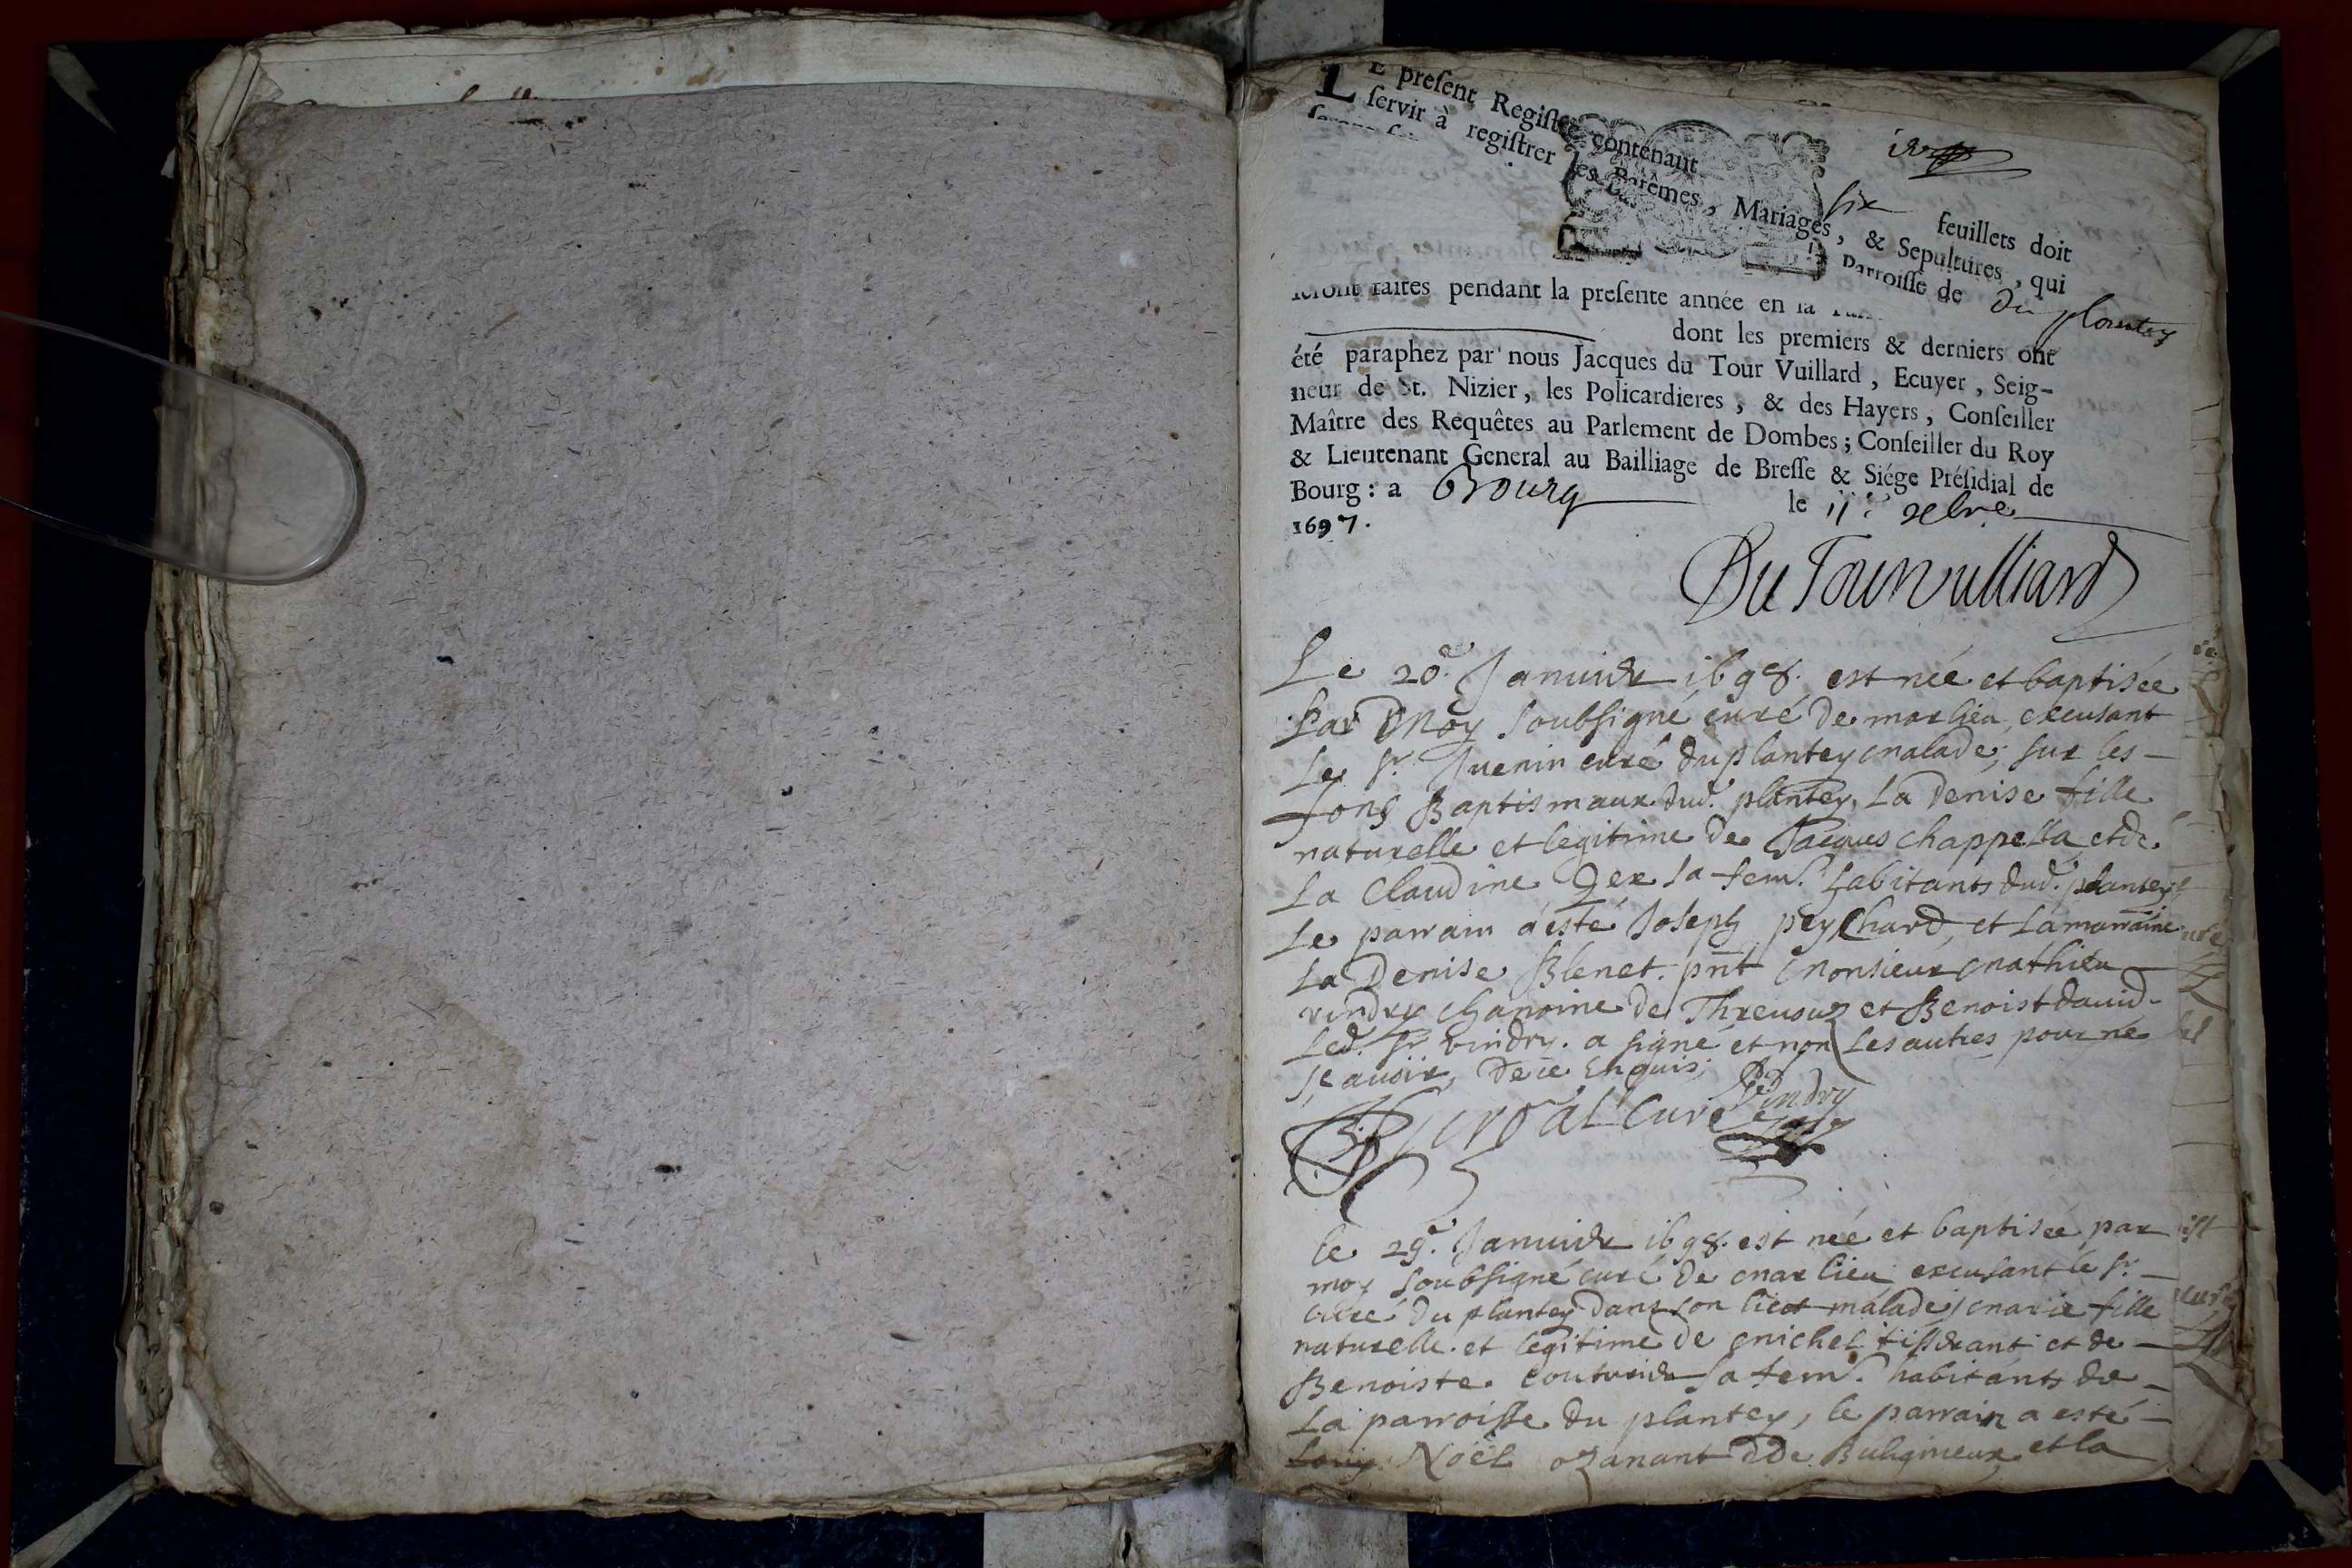 LE preſent Regiſtre contenant six feuillets doit
ſervir à regiſtrer les Batêmes, Mariages, & Sepultures, qui
ſeront faites pendant la preſente année en la Parroiſſe de Du plantey
dont les premiers & derniers ont
été paraphez par nous Jacques du Tour Vuillard, Ecuyer, Seig-
neur de St. Nizier, les Policardieres, & des Hayers, Conſeiller
Maître des Requêtes au Parlement de Dombes; Conſeiller du Roy
& Lieutenant General au Bailliage de Breſſe & Siége Préſidial de
Bourg: a Bourg le 11e
1697.
Du Tour vulliard
Le 20e Januier 1698. est née et baptisée
Par Moy soubsigné curé de marlieu excusant
Le sr Juenin curé du plantey malade, sur les
fons Baptismaux dud. plantey, La Denise fille
naturelle et legitime de Jacques chappella et de
La Claudine Iex sa fem. habitants dud. plantey
Le parrain a esté Joseph peychard, et la marraine
La Denise Blenet. pnt Monsieur Mathieu
vindry chanoine de Threuoux et Benoist dauid
Led. sr vindry. a signé et non les autres pour ne
sçauoir, de ce Enquis,
curé Vindry
le 29e Januier 1698. est née et baptisée par
moy soubsigné curé de marlieu excusant le sr
curé du plantey dans son lict malade, marie fille
naturelle et legitime de michel tisserant et de
Benoiste couturier sa fem. habitants de
La parroisse du plantey, le parrain a esté
Louy Noël ozanant de Buligneux et la